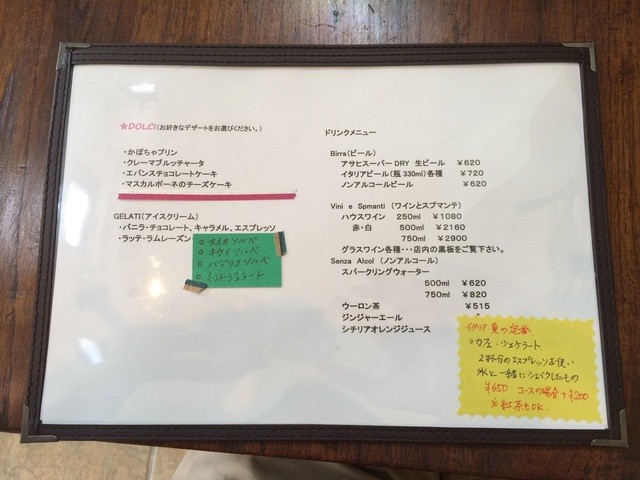 ★DOLCI(お好きなデザートをお選びください。)
・かぼちゃプリン
・クレーマブルッチャータ
・エバンスチョコレートケーキ
・マスカルポーネのチーズケーキ
GELATI(アイスクリーム)
・バニラ・チョコレート、キャラメル、エスプレッソ
・ラッテ・ラムレーズン
○スイカソルベ
○キウイソルベ
○バジリコソルベ
○ミントジェラート
ドリンクメニュー
Birra(ビール)
アサヒスーパーDRY 生ビール ¥620
イタリアビール(瓶 330ml)各種 ¥720
ノンアルコールビール ¥620
Vini e Spmanti (ワインとスプマンテ)
ハウスワイン 250ml ¥1080
赤・白 500ml ¥2160
750ml ¥2900
グラスワイン各種・・・店内の黒板をご覧下さい。
Senza Alcol (ノンアルコール)
スパークリングウォーター
500ml ¥620
750ml ¥820
ウーロン茶 ¥515
ジンジャーエール
シチリアオレンジジュース
イタリア 夏の定番
○カフェ・シェケラート
2杯分のエスプレッソを使い
氷と一緒にシェイクしたもの
¥650 コースの場合+¥200
※紅茶もOK.